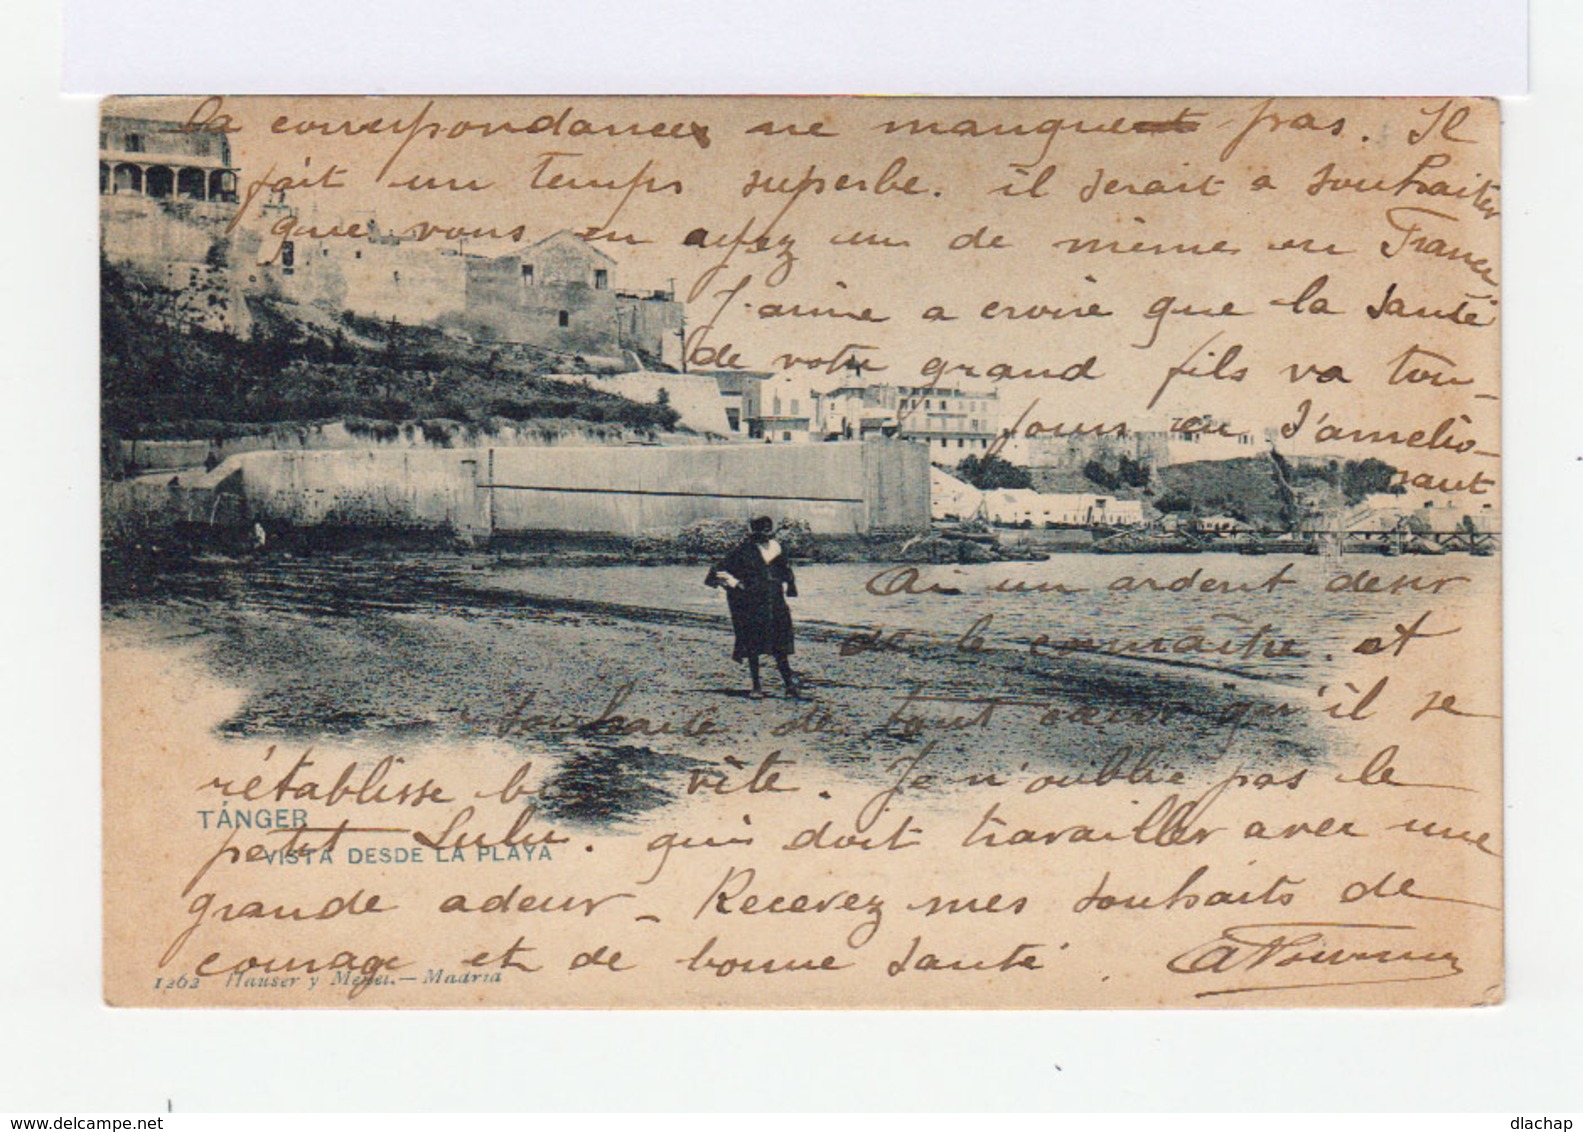 la correspondance ne manque pas. Il
fait un temps superbe. il serait a souhaiter
que vous en ayez un de même en France
J'aime a croire que la santé
de votre grand fils va tou-
jours en s'amélio-
rant
Ai un ardent desir
de le connaître et
souhaite de tout cœur qu'il se
rétablisse vite. Je n'oublie pas le
TÁNGER
petit Lulu. qui doit travailler avec une
VISTA DESDE LA PLAYA
grande adeur - Recevez mes souhaits de
courage et de bonne santé.
1262 Hauser y Menet.—Madrid
www.delcampe.net
dlachap